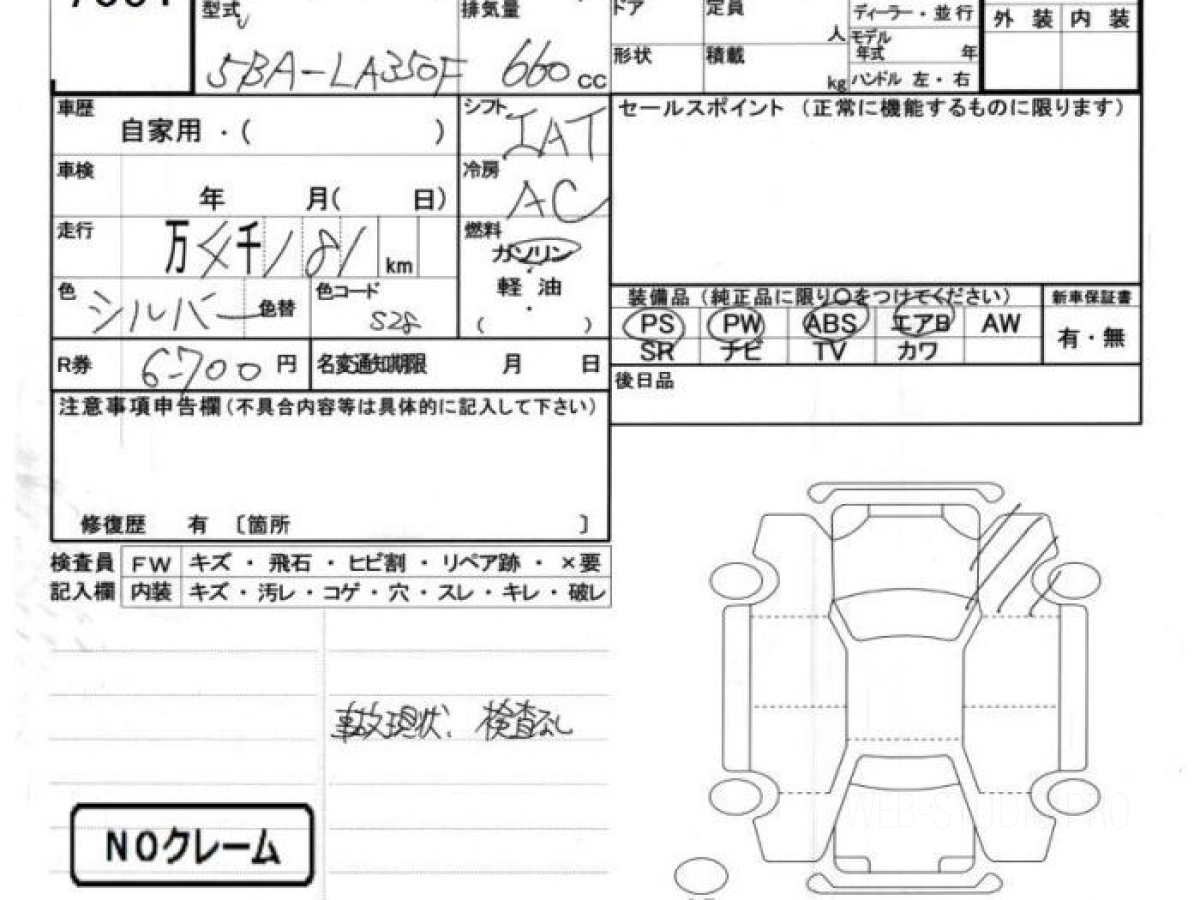 型式 排気量 ドア 定員 人 ディーラー・並行 外装 内装
モデル年式 年
5BA-LA350F 660 cc 形状 積載 kg ハンドル 左・右
車歴 自家用・( ) シフト IAT セールスポイント (正常に機能するものに限ります)
車検 年 月( 日) 冷房 AC
走行 万 4千181 km 燃料 ガソリン
軽油
・
( )
色 シルバー 色替 色コード S28
装備品 (純正品に限り〇をつけてください) 新車保証書
PS PW ABS エアB AW 有・無
SR ナビ TV カワ
R券 6700 円 名変通知期限 月 日 後日品
注意事項申告欄(不具合内容等は具体的に記入して下さい)
修復歴 有 〔箇所 〕
検査員 FW キズ ・ 飛石 ・ ヒビ割 ・ リペア跡 ・ ×要
記入欄 内装 キズ・汚レ・コゲ・穴・スレ・キレ・破レ
事故現状、検査なし
NOクレーム
WEB-STUDIO.PRO